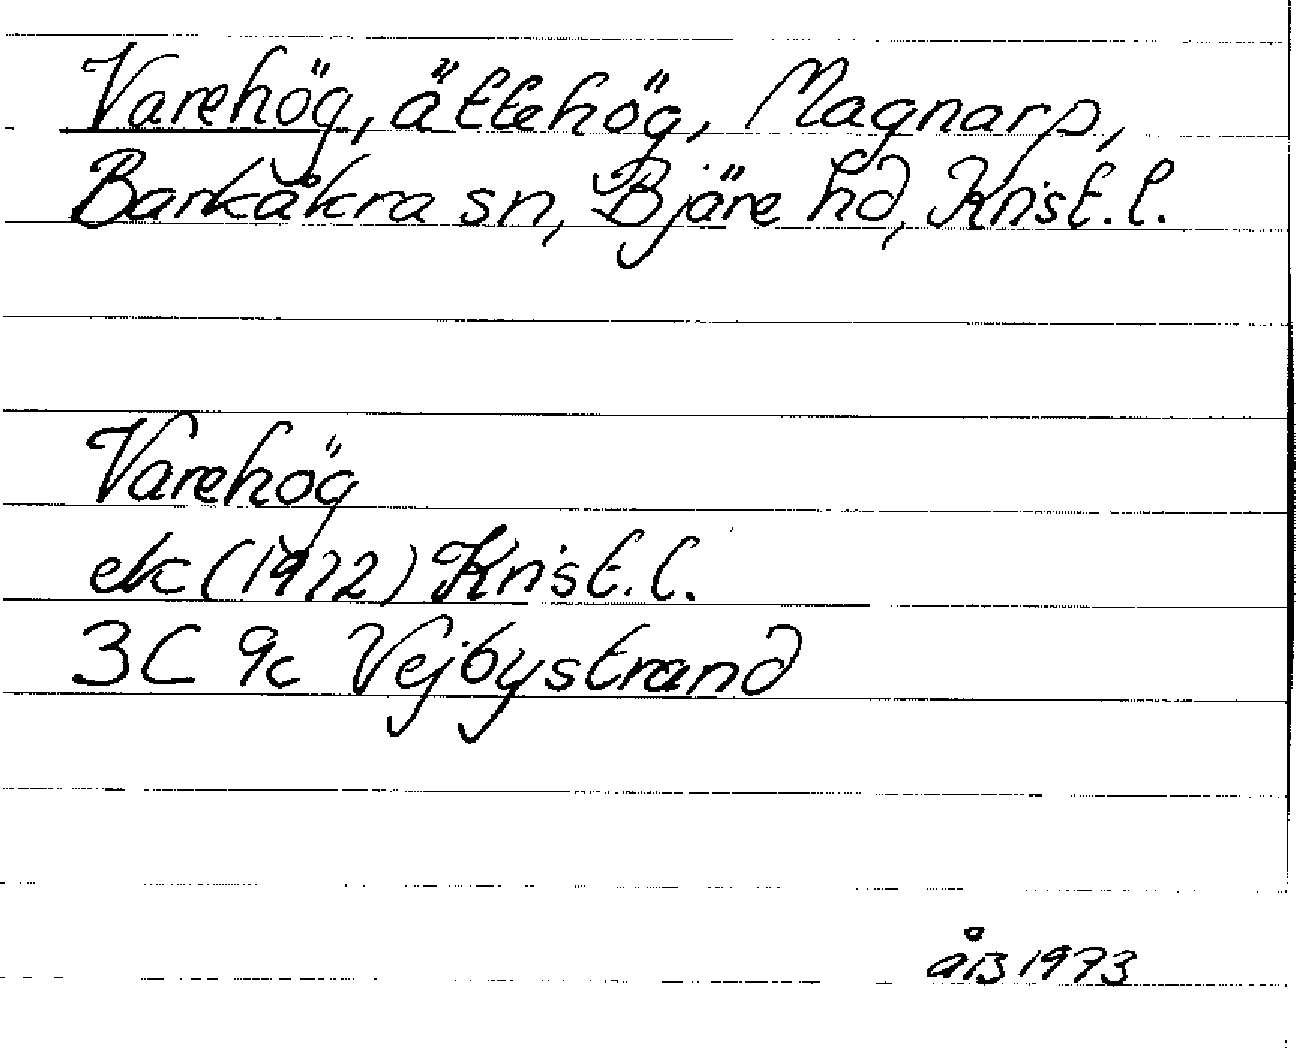 Varehög, ättehög, Magnarp,
Barkåkra sn, Bjäre hd, Krist. l.
Varehög
ek (1972) Krist. l.
3C 9c Vejbystrand
åB 1973